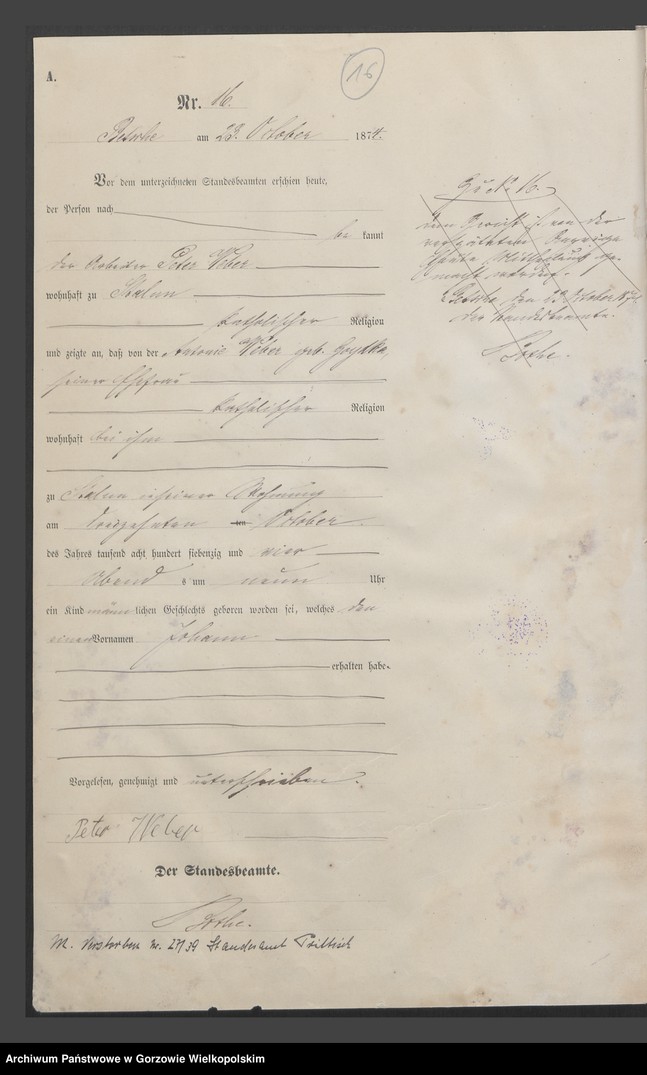 A.
16
Nr. 16.
Betsche am 23. October 1874.
Vor dem unterzeichneten Standesbeamten erschien heute,
der Person nach
be kannt
der Arbeiter Peter Weber
wohnhaft zu Stalun
katholischer Religion
und zeigte an, daß von der Antonie Weber geb.
seiner Ehefrau
katholischer Religion
wohnhaft bei ihm
zu Stalun in seiner Wohnung
am dreizehnten ten October
des Jahres tausend acht hundert siebenzig und vier
Abend s um neun Uhr
ein Kind männ lichen Geschlechts geboren worden sei, welches den
einen Vornamen Johann
erhalten habe.
Vorgelesen, genehmigt und unterschrieben.
Peter Weber
Der Standesbeamte.
M. Verstorben Nr. 27/39 Standesamt
Zu No 16.
Dem Gericht ist von der
verspäteten Anzeige
heute Mittheilung ge-
macht worden.
Betsche, den 23 October 1874
Der Standesbeamte.
Archiwum Państwowe w Gorzowie Wielkopolskim